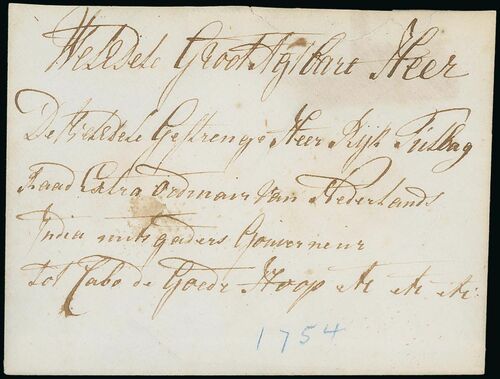 WelEdele Groot Agtbare Heer
De WelEdele Gestrenge Heer Rijk Tulbag
Raad Extra Ordinair van Nederlands
India mitsgaders Gouverneur
tot Cabo de Goede Hoop etc etc etc
1754